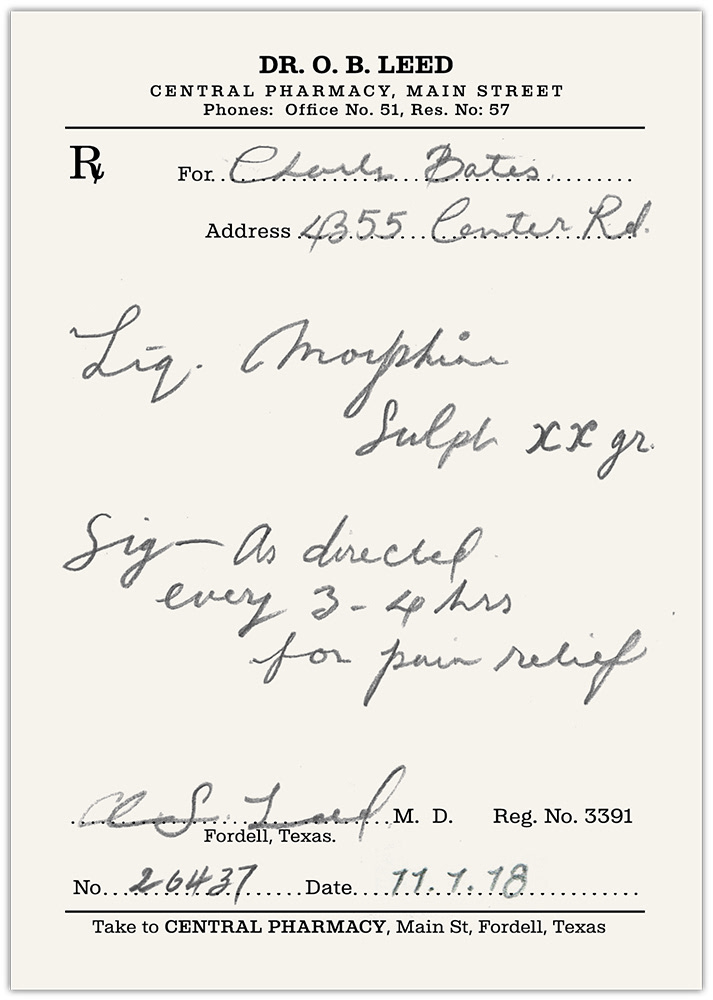 DR. O. B. LEED
CENTRAL PHARMACY, MAIN STREET
Phones: Office No. 51, Res. No: 57
Rx For Charles Bates
Address 4355 Center Rd.
Liq. Morphine
Sulph xx gr.
Sig— As directed
every 3-4 hrs
for pain relief
Leed M. D. Reg. No. 3391
Fordell, Texas.
No. 26437 Date 11.7.18
Take to CENTRAL PHARMACY, Main St, Fordell, Texas